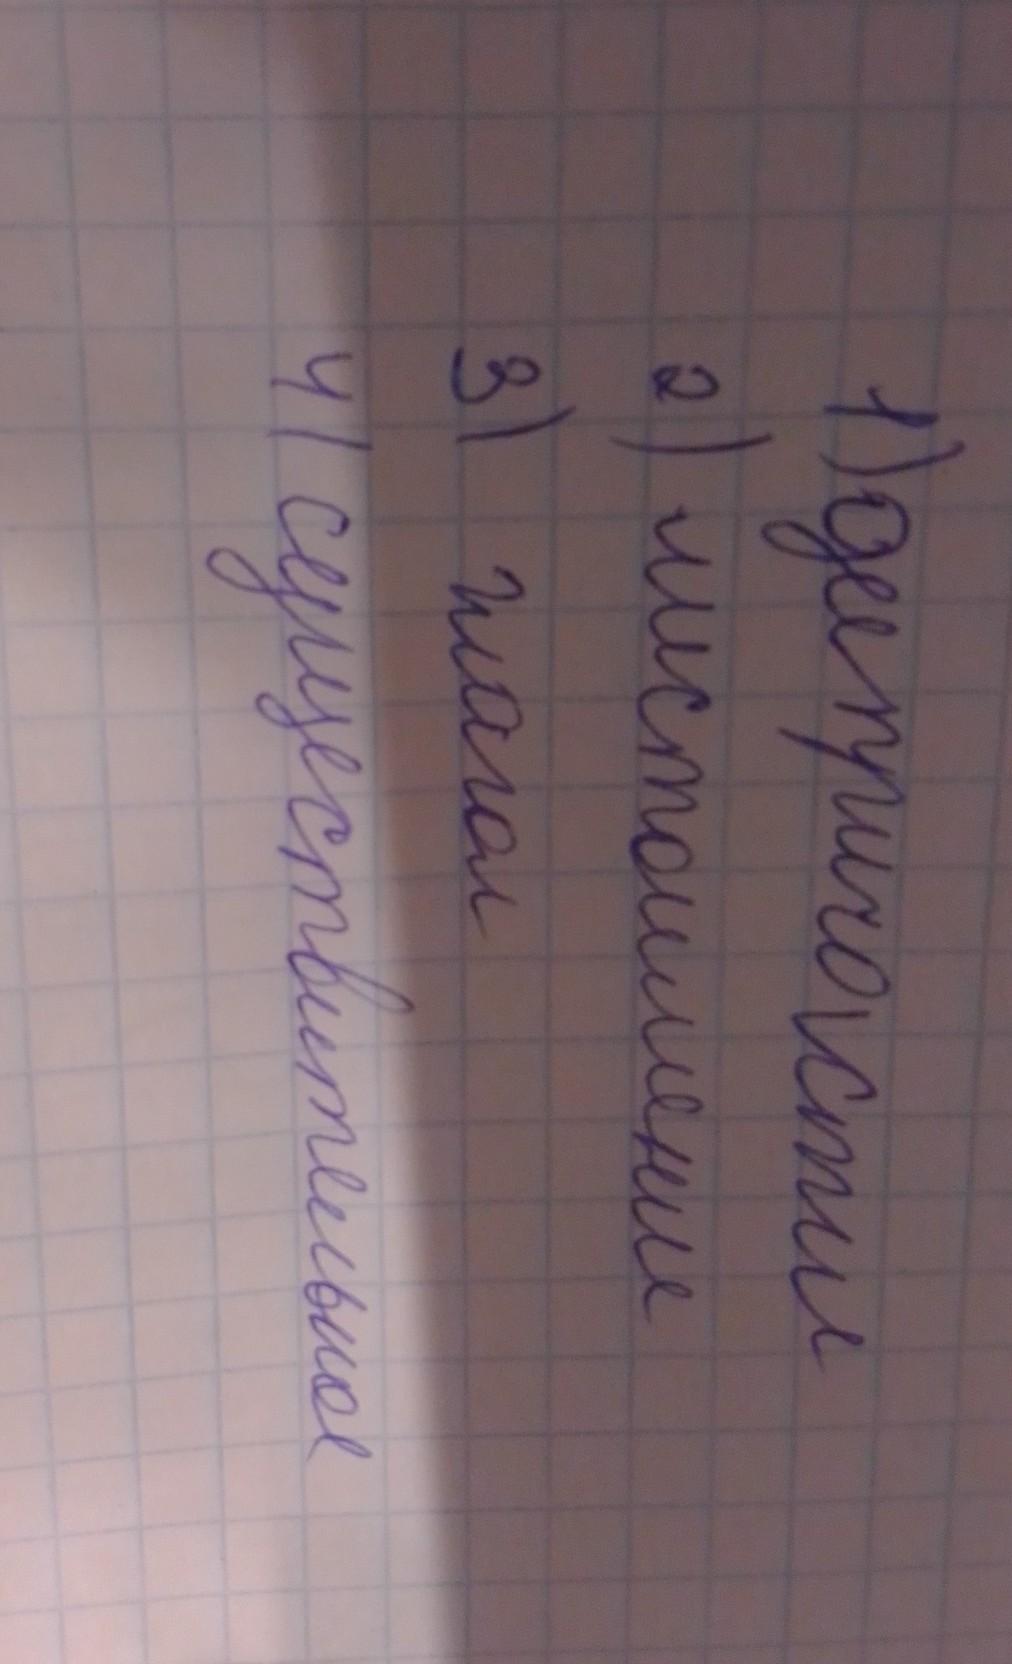 1) деепричастие
2) местоимение
3) глагол
4) существительное